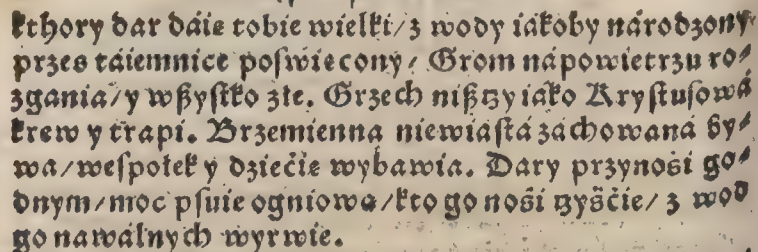 kthory dar dáie tobie wielki/ z wody iákoby národzony
przes táiemnice poświecony/ Grom nápowietrzu ro⸗
zgania/ y wßyſtko złe. Grzech nißczy iáko Kryſtuſowá
krew y trapi. Brzemienna niewiáſtá záchowaná by⸗
wa/ weſpołek y dziećie wybawia. Dary przynośi go⸗
dnym/ moc pſuie ogniowa/ kto go nośi czyśćie/ z wod
go nawálnych wyrwie.